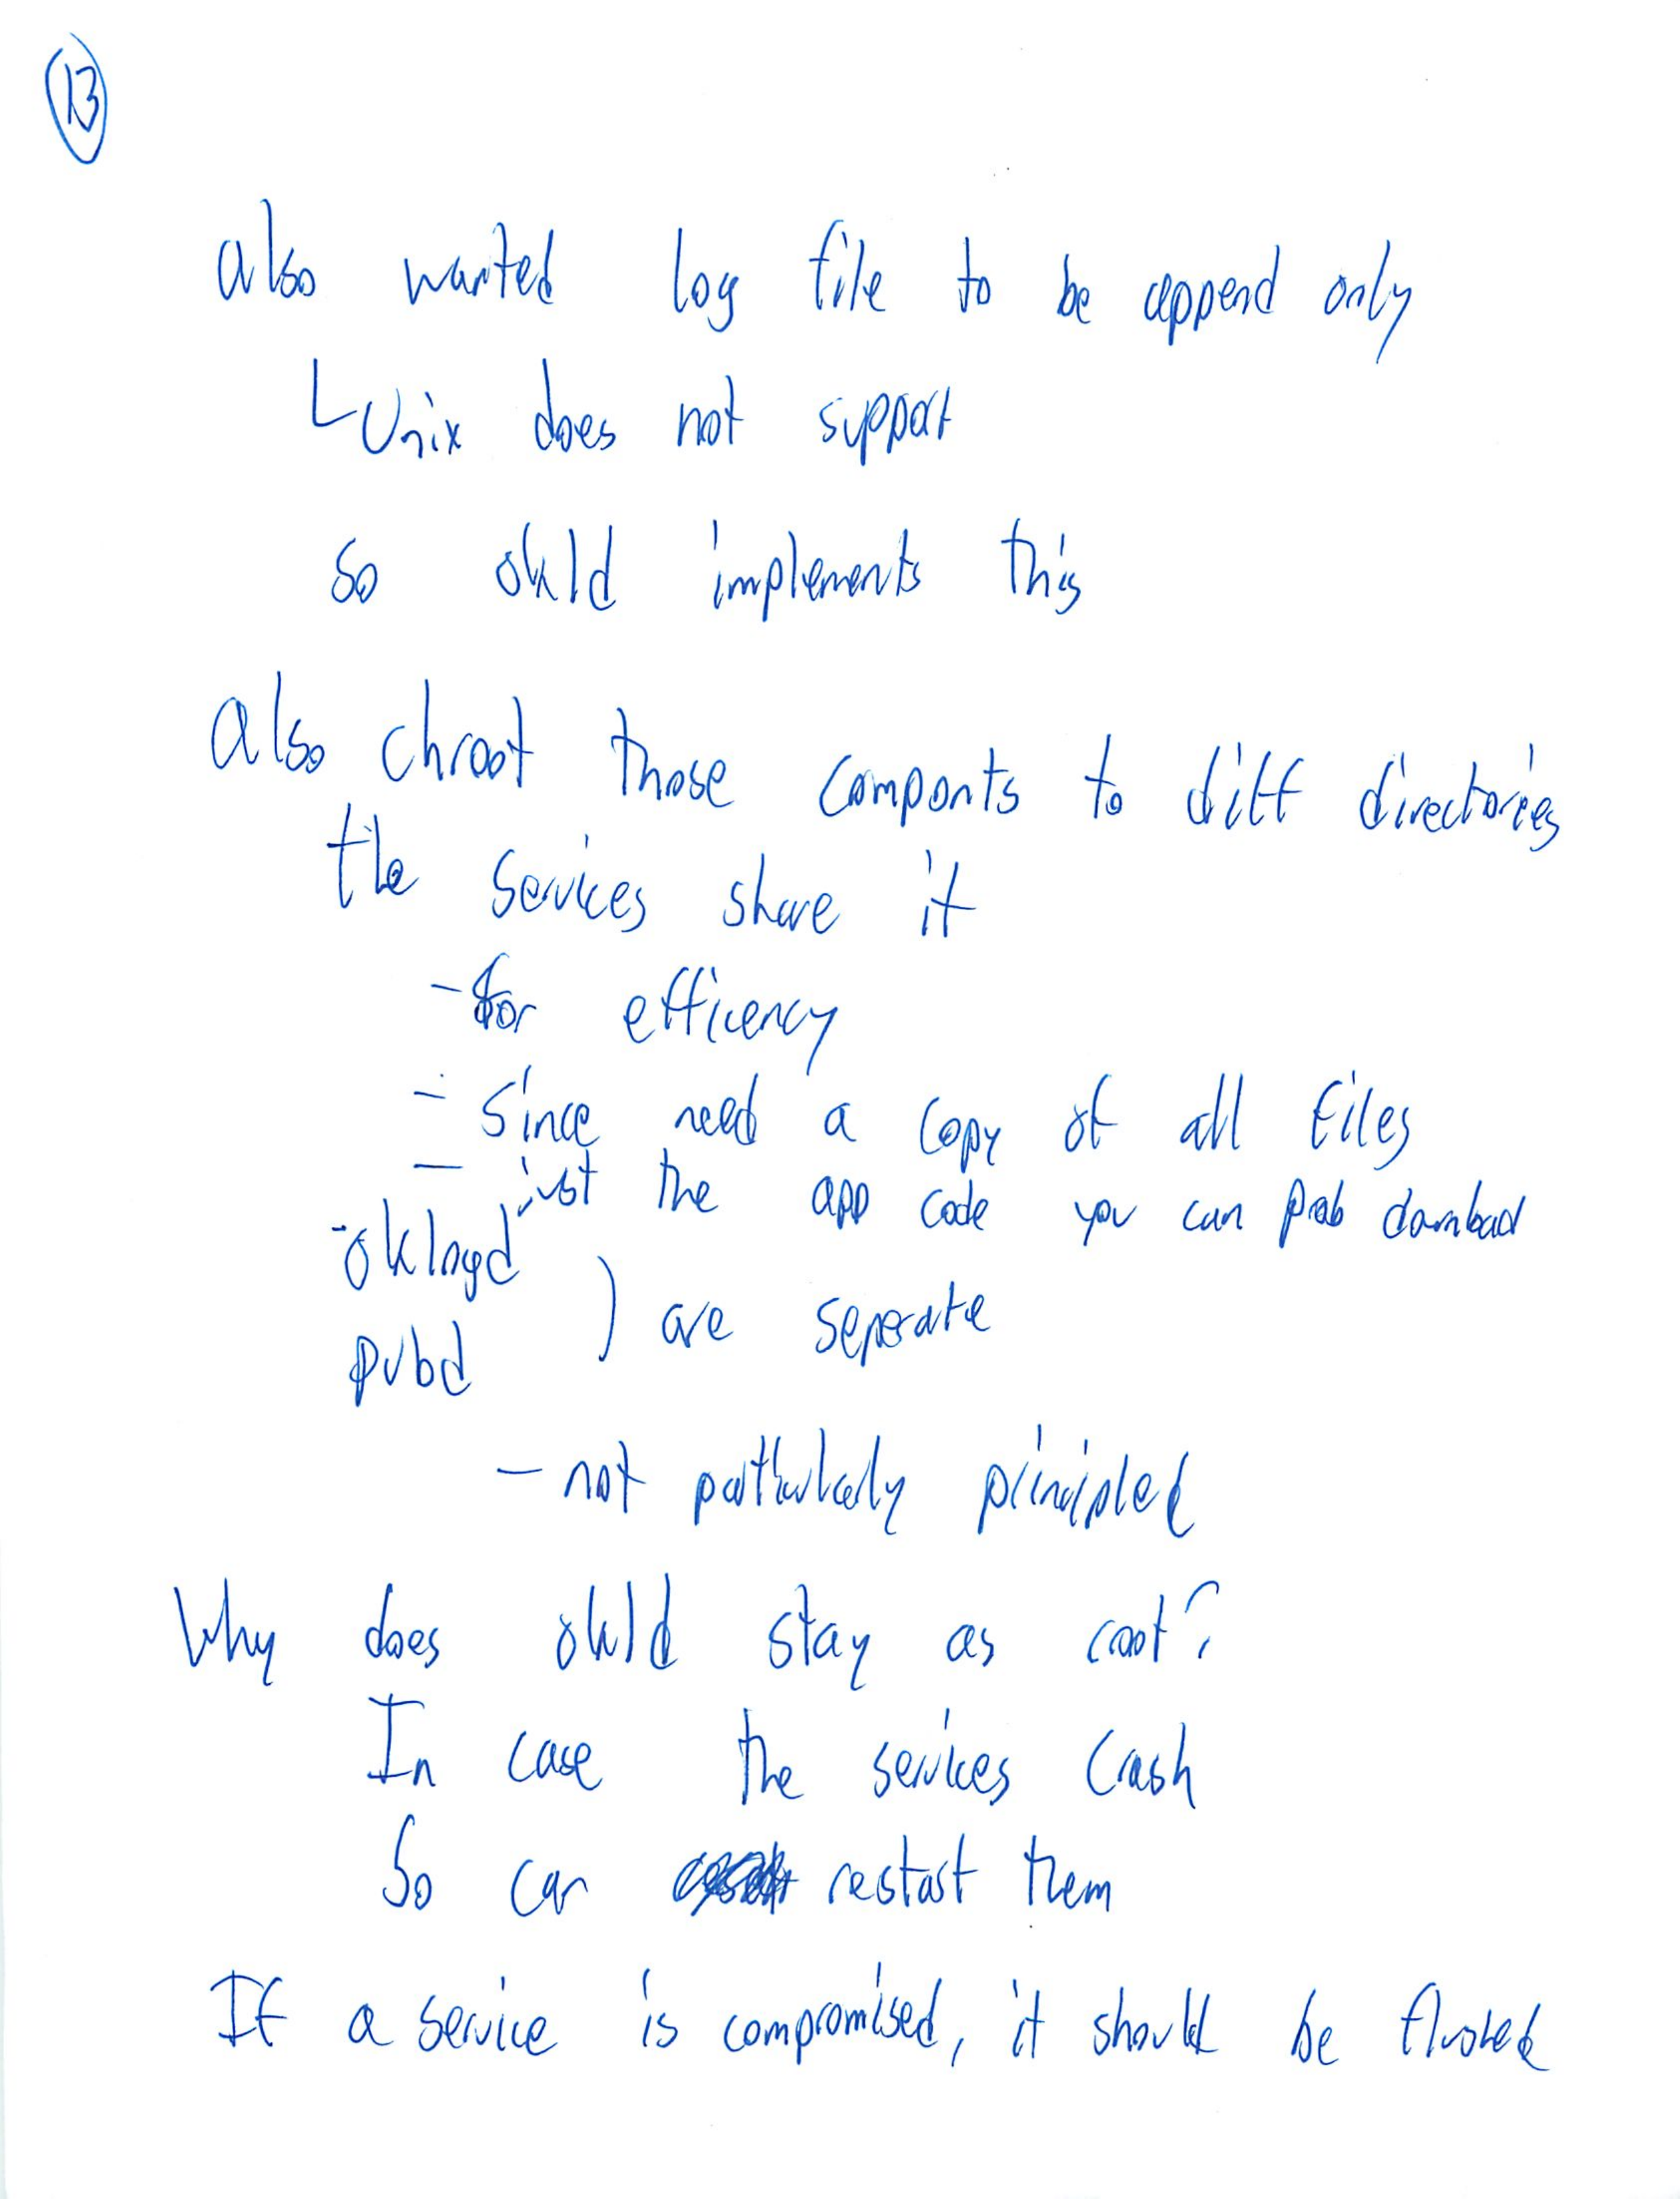 13
also wanted log file to be append only
Unix does not support
so okld implements this
also chroot those componts to diff directories
the services share it
- for efficency
- Since need a copy of all files
- just the app code you can prob download
- oklogd
) are seperate
pubd
- not particularly principled
Why does okld stay as root?
In case the services crash
So can restart them
If a service is compromised, it should be flushed